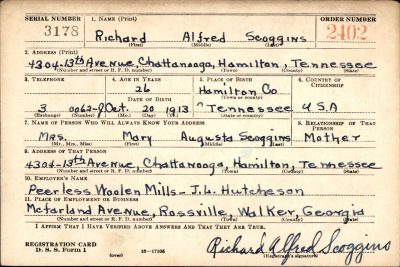 SERIAL NUMBER 1. NAME (Print) ORDER NUMBER
3178 Richard Alfred Scoggins 2402
(First) (Middle) (Last)
2. ADDRESS (Print)
4304-13th Avenue, Chattanooga, Hamilton, Tennessee
(Number and street or R. F. D. number) (Town) (County) (State)
3. TELEPHONE 4. AGE IN YEARS 5. PLACE OF BIRTH 6. COUNTRY OF CITIZENSHIP
26 Hamilton Co
DATE OF BIRTH (Town or county)
3 0062-J Oct. 20 1913 Tennessee U.S.A
(Exchange) (Number) (Mo.) (Day) (Yr.) (State or country)
7. NAME OF PERSON WHO WILL ALWAYS KNOW YOUR ADDRESS 8. RELATIONSHIP OF THAT PERSON
Mrs. Mary Augusta Scoggins Mother
(Mr., Mrs., Miss) (First) (Middle) (Last)
9. ADDRESS OF THAT PERSON
4304-13th Avenue, Chattanooga, Hamilton, Tennessee
(Number and street or R. F. D. number) (Town) (County) (State)
10. EMPLOYER'S NAME
Peerless Woolen Mills - J.L. Hutcheson
11. PLACE OF EMPLOYMENT OR BUSINESS
McFarland Avenue, Rossville, Walker, Georgia
(Number and street or R. F. D. number) (Town) (County) (State)
I AFFIRM THAT I HAVE VERIFIED ABOVE ANSWERS AND THAT THEY ARE TRUE.
REGISTRATION CARD
D. S. S. Form 1 (over) 16-17105 Richard Alfred Scoggins
(Registrant's signature)